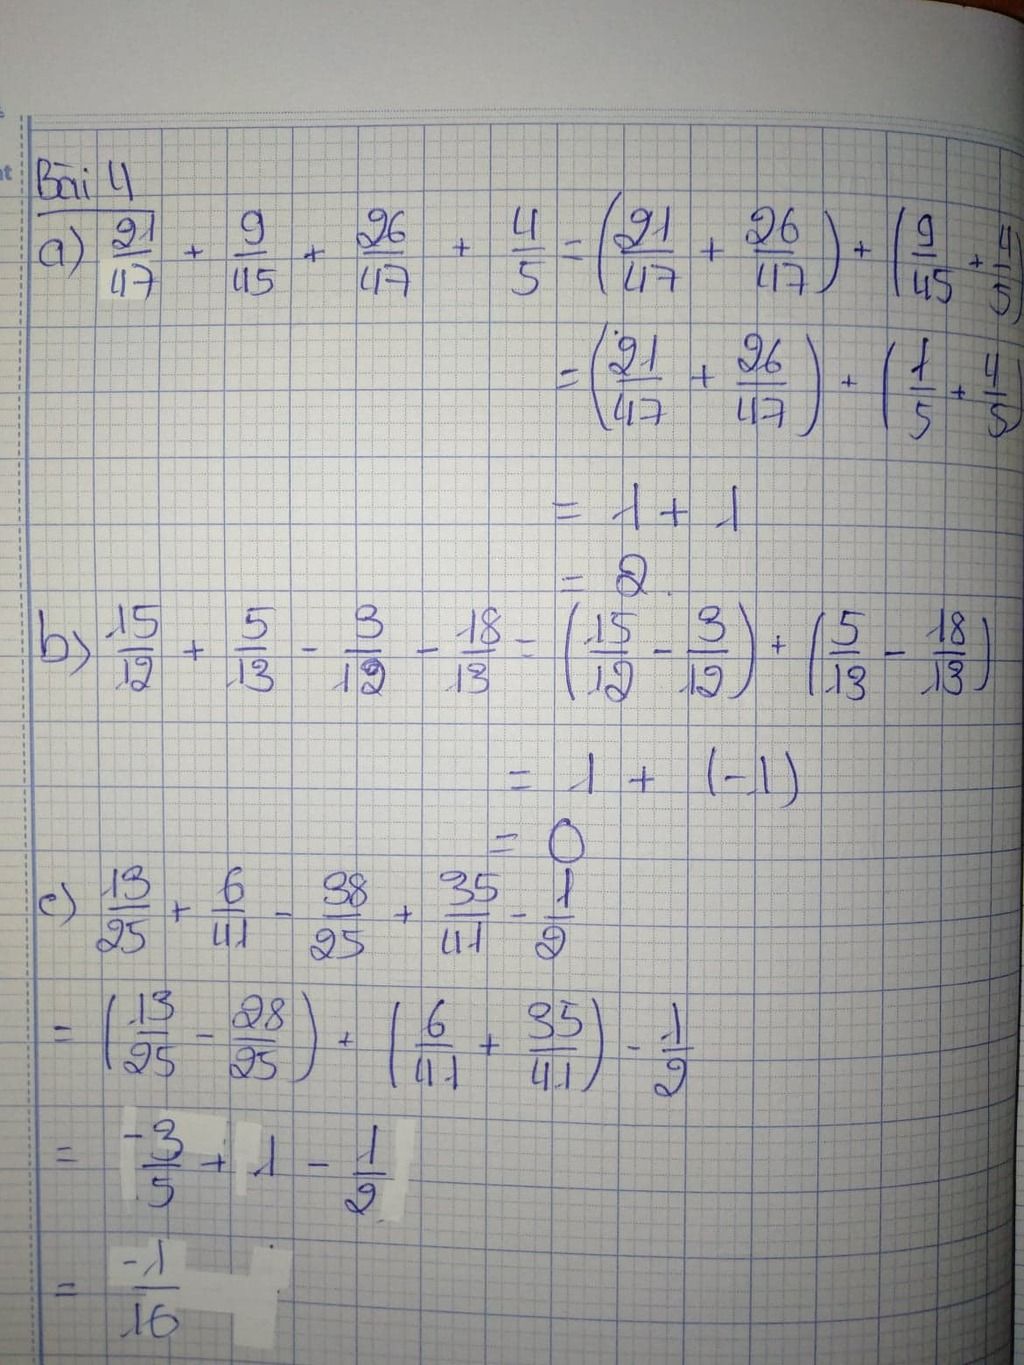 Bài 4
a) 21/47 + 9/45 + 26/47 + 4/5 = (21/47 + 26/47) + (9/45 + 4/5)
= (21/47 + 26/47) + (1/5 + 4/5)
= 1 + 1
= 2
b) 15/12 + 5/13 - 3/12 - 18/13 = (15/12 - 3/12) + (5/13 - 18/13)
= 1 + (-1)
= 0
c) 13/25 + 6/41 - 38/25 + 35/41 - 1/2
= (13/25 - 28/25) + (6/41 + 35/41) - 1/2
= -3/5 + 1 - 1/2
= -1/16